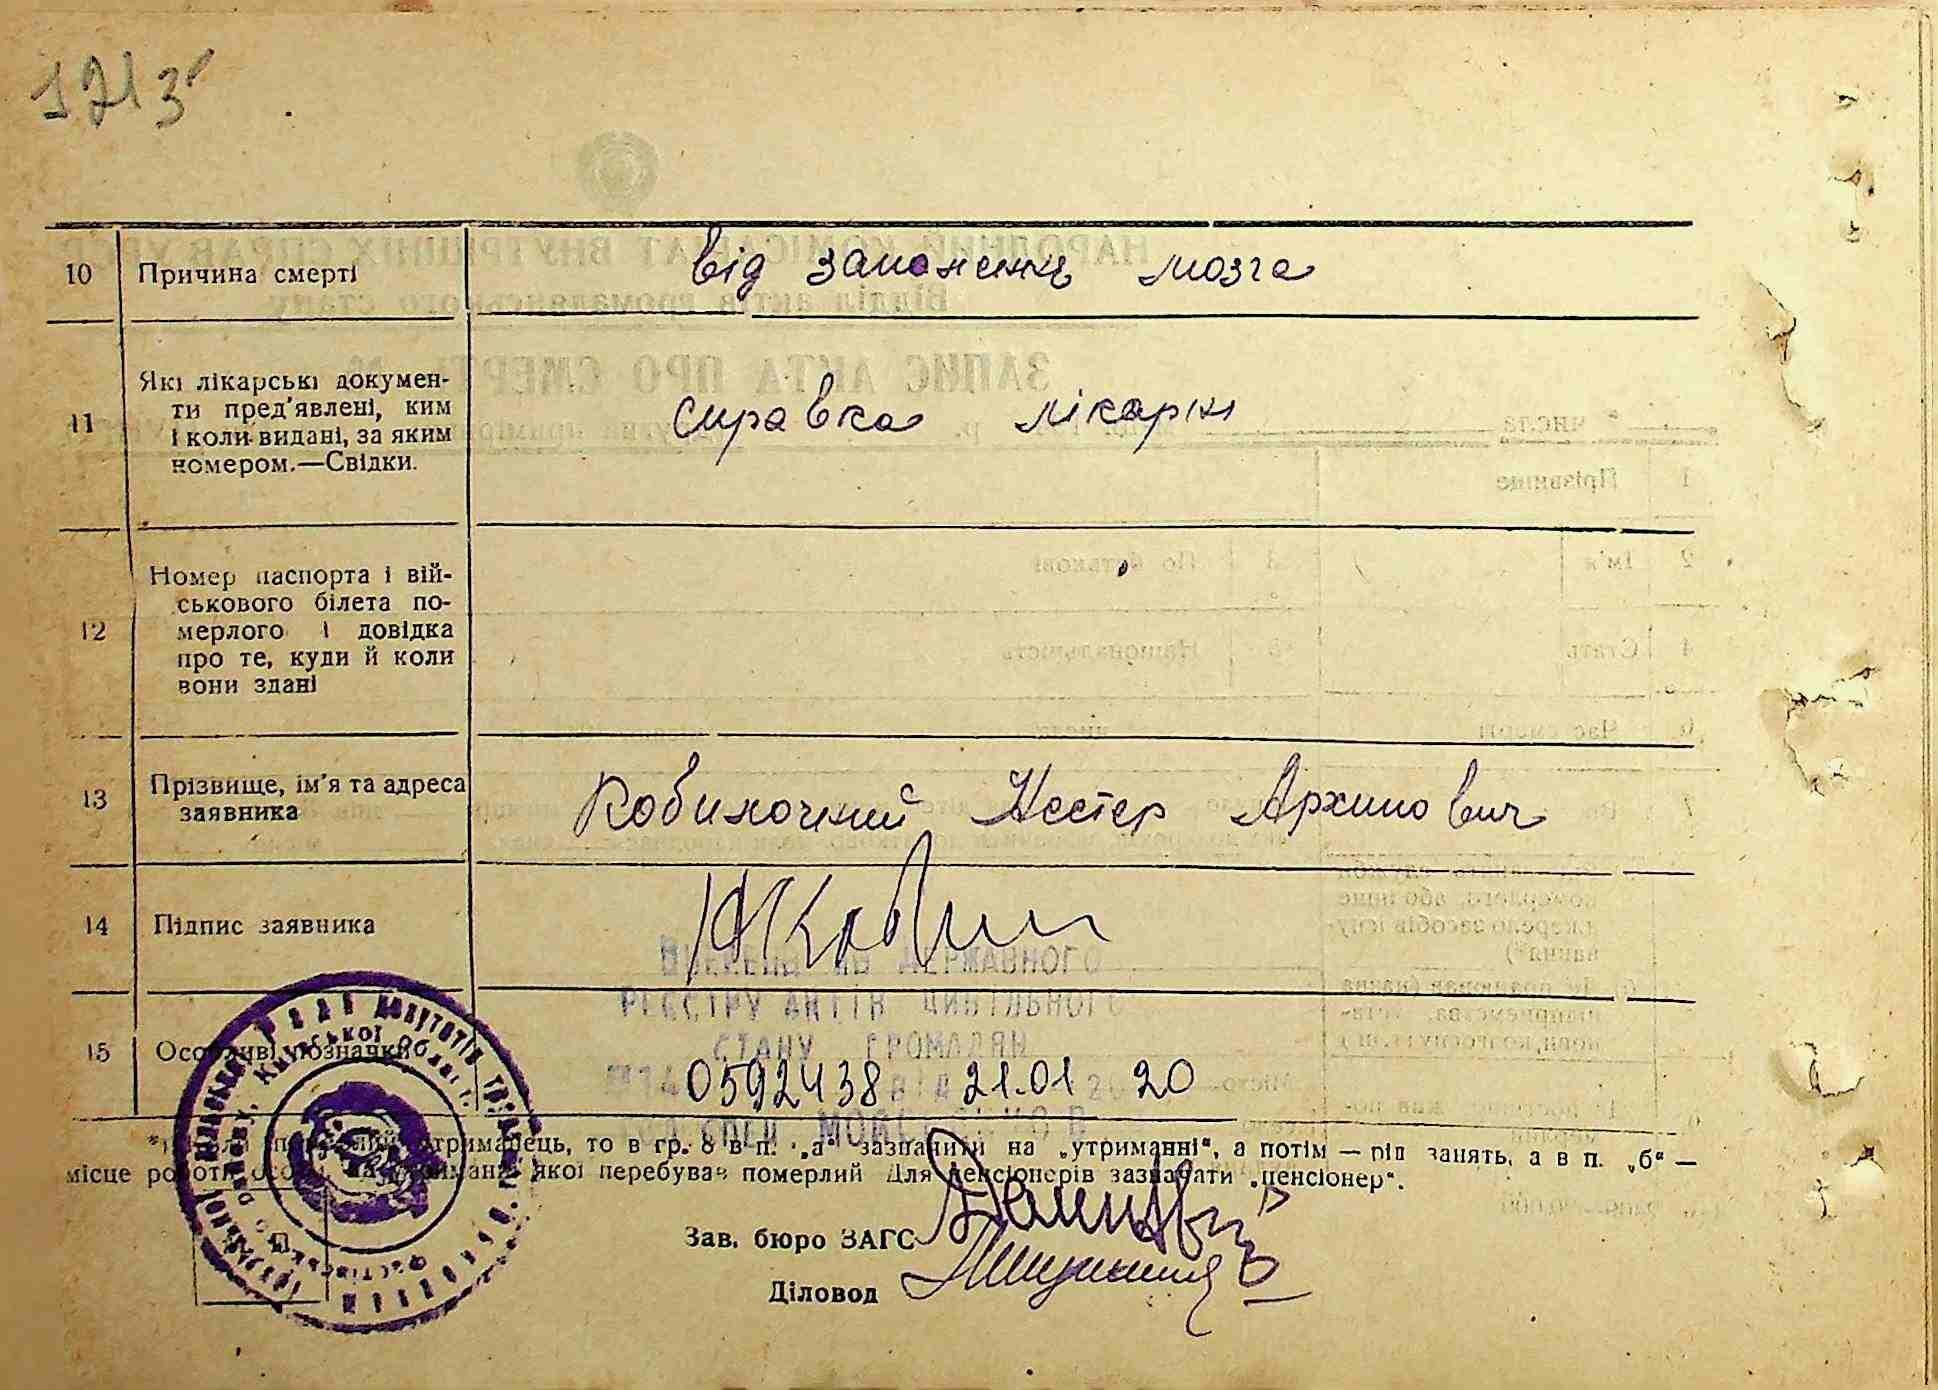 1713
10 Причина смерті від запаления мозга
11 Які лікарські докумен-
ти пред'явлені, ким
і коли видані, за яким
номером.—Свідки.
справка лікарні
12 Номер паспорта і вій-
ськового білета по-
мерлого і довідка
про те, куди й коли
вони здані
13 Прізвище, ім'я та адреса
заявника
Кобиночний Нестер Архипович
14 Підпис заявника
ДЕРЖАВНОГО
РЕЄСТРУ АКТІВ ЦИВІЛЬНОГО
СТАНУ ГРОМАДЯН
15 Особливі позначки
0592438 від 21.01 2020
утриманець, то в гр. 8 в п. „а“ зазначити на „утриманні“, а потім — рід занять, а в п. „б“ —
місце роботи особи, на утриманні якої перебував померлий Для пенсіонерів зазначати „пенсіонер“.
Зав. бюро ЗАГС
Діловод